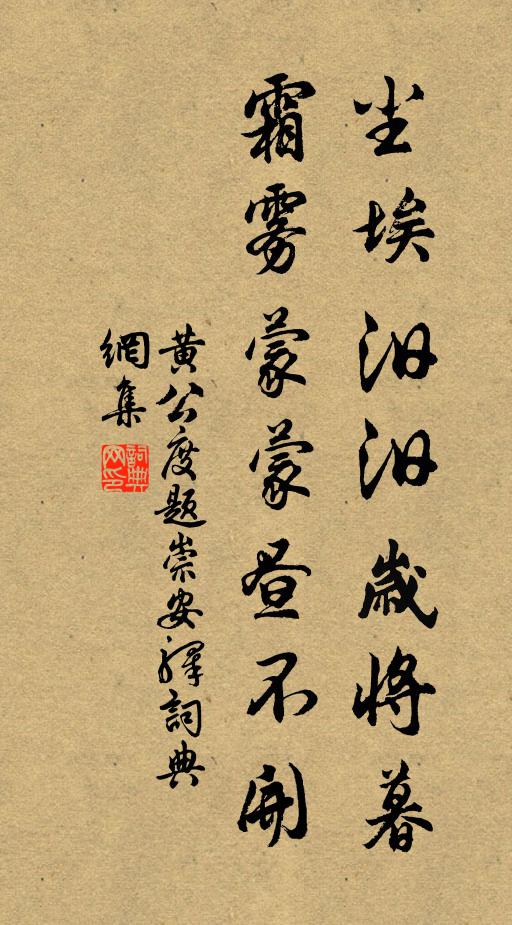 尘埃汩汩岁将暮
霜雾蒙蒙昼不开
黄公度题崇安驿詞典
網集
詞典网印